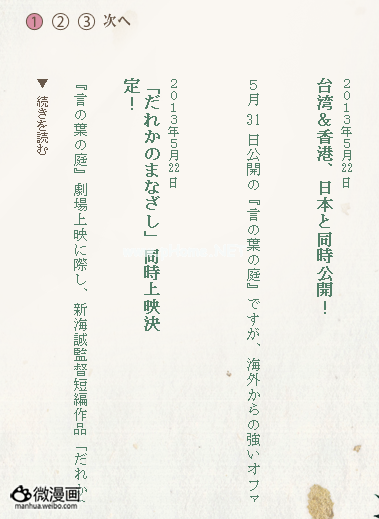 ① ② ③ 次へ
2013年5月22日
台湾&香港、日本と同時公開!
5月31日公開の『言の葉の庭』ですが、海外からの強いオファ
2013年5月22日
「だれかのまなざし」同時上映決
定!
『言の葉の庭』劇場上映に際し、新海誠監督短編作品「だれか
▼ 続きを読む
微漫画
manhua.weibo.com